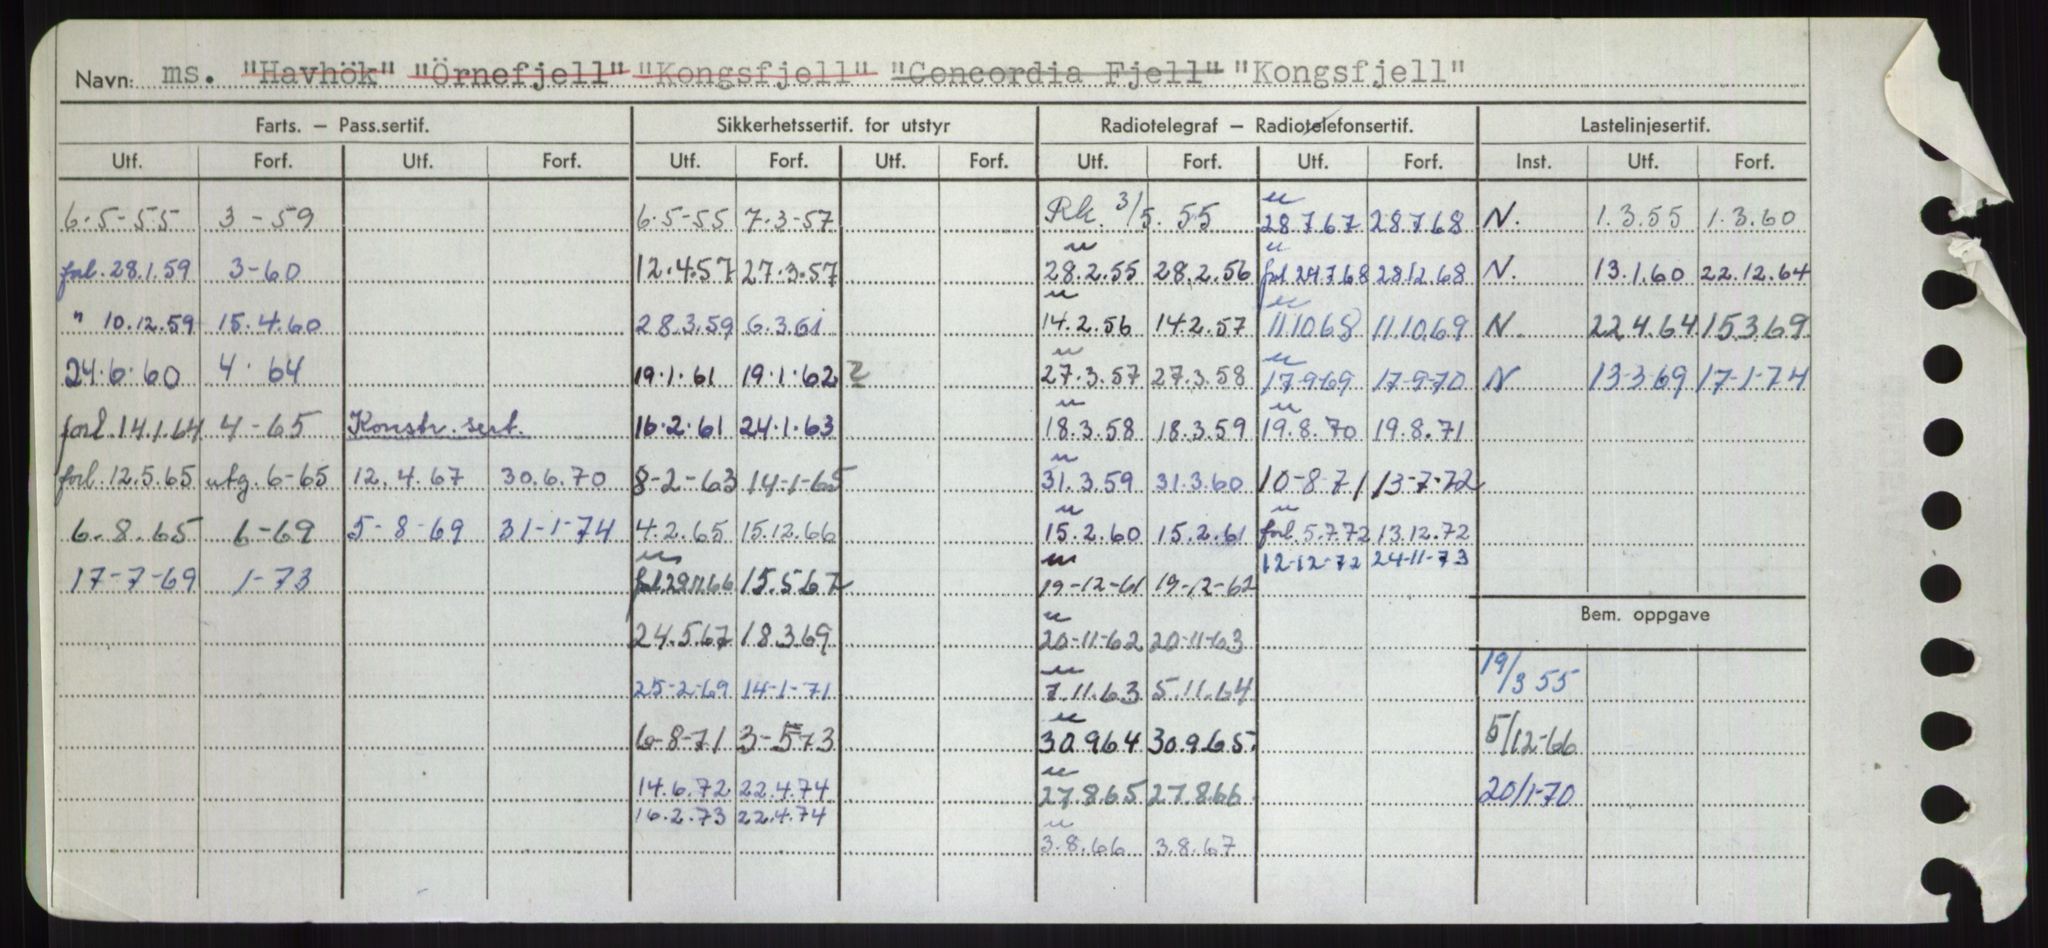 Navn: ms. "Havhök" "Örnefjell" "Kongsfjell" "Concordia Fjell" "Kongsfjell"
Farts. – Pass.sertif. Sikkerhetssertif. for utstyr Radiotelegraf – Radiotelefonsertif. Lastelinjesertif.
Utf. Forf. Utf. Forf. Utf. Forf. Utf. Forf. Utf. Forf. Utf. Forf. Inst. Utf. Forf.
6.5-55 3-59 6.5-55 7.3-57 Rk. 3/5.55 u 28.7.67 28.7.68 N. 1.3.55 1.3.60
forl. 28.1.59 3-60 12.4.57 27.3.57 u 28.2.55 28.2.56 u forl 24.7.68 28.12.68 N. 13.1.60 22.12.64
" 10.12.59 15.4.60 28.3.59 6.3.61 u 14.2.56 14.2.57 u 11.10.68 11.10.69 N 22.4.64 15.3.69
24.6.60 4.64 19.1.61 19.1.62 2 u 27.3.57 27.3.58 u 17-9-69 17-9-70 N 13-3-69 17-1-74
forl. 14.1.64 4-65 Konstr. sert. 16.2.61 24.1.63 u 18.3.58 18.3.59 u 19.8.70 19.8.71
forl. 12.5.65 utg. 6-65 12.4.67 30.6.70 8-2-63 14-1-65 u 31.3.59 31.3.60 10-8-71 13-7-72
6.8.65 6-69 5-8-69 31-1-74 4.2.65 15.12.66 u 15.2.60 15.2.61 u forl. 5.7.72 13.12.72
12-12-72 24-11-73
17-7-69 1-73 forl. 29.11.66 15.5.67 u 19-12-61 19-12-62
Bem. oppgave
24.5.67 18.3.69 u 20-11-62 20-11-63
25-2-69 14-1-71 u 7.11.63 5.11.64 19/3 55
6-8-71 3-5-73 u 30.9.64 30.9.65. 5/12-66
14.6.72 22.4.74 u 27.8.65 27.8.66 20/1-70
16.2.73 22.4.74
u 3.8.66 3.8.67